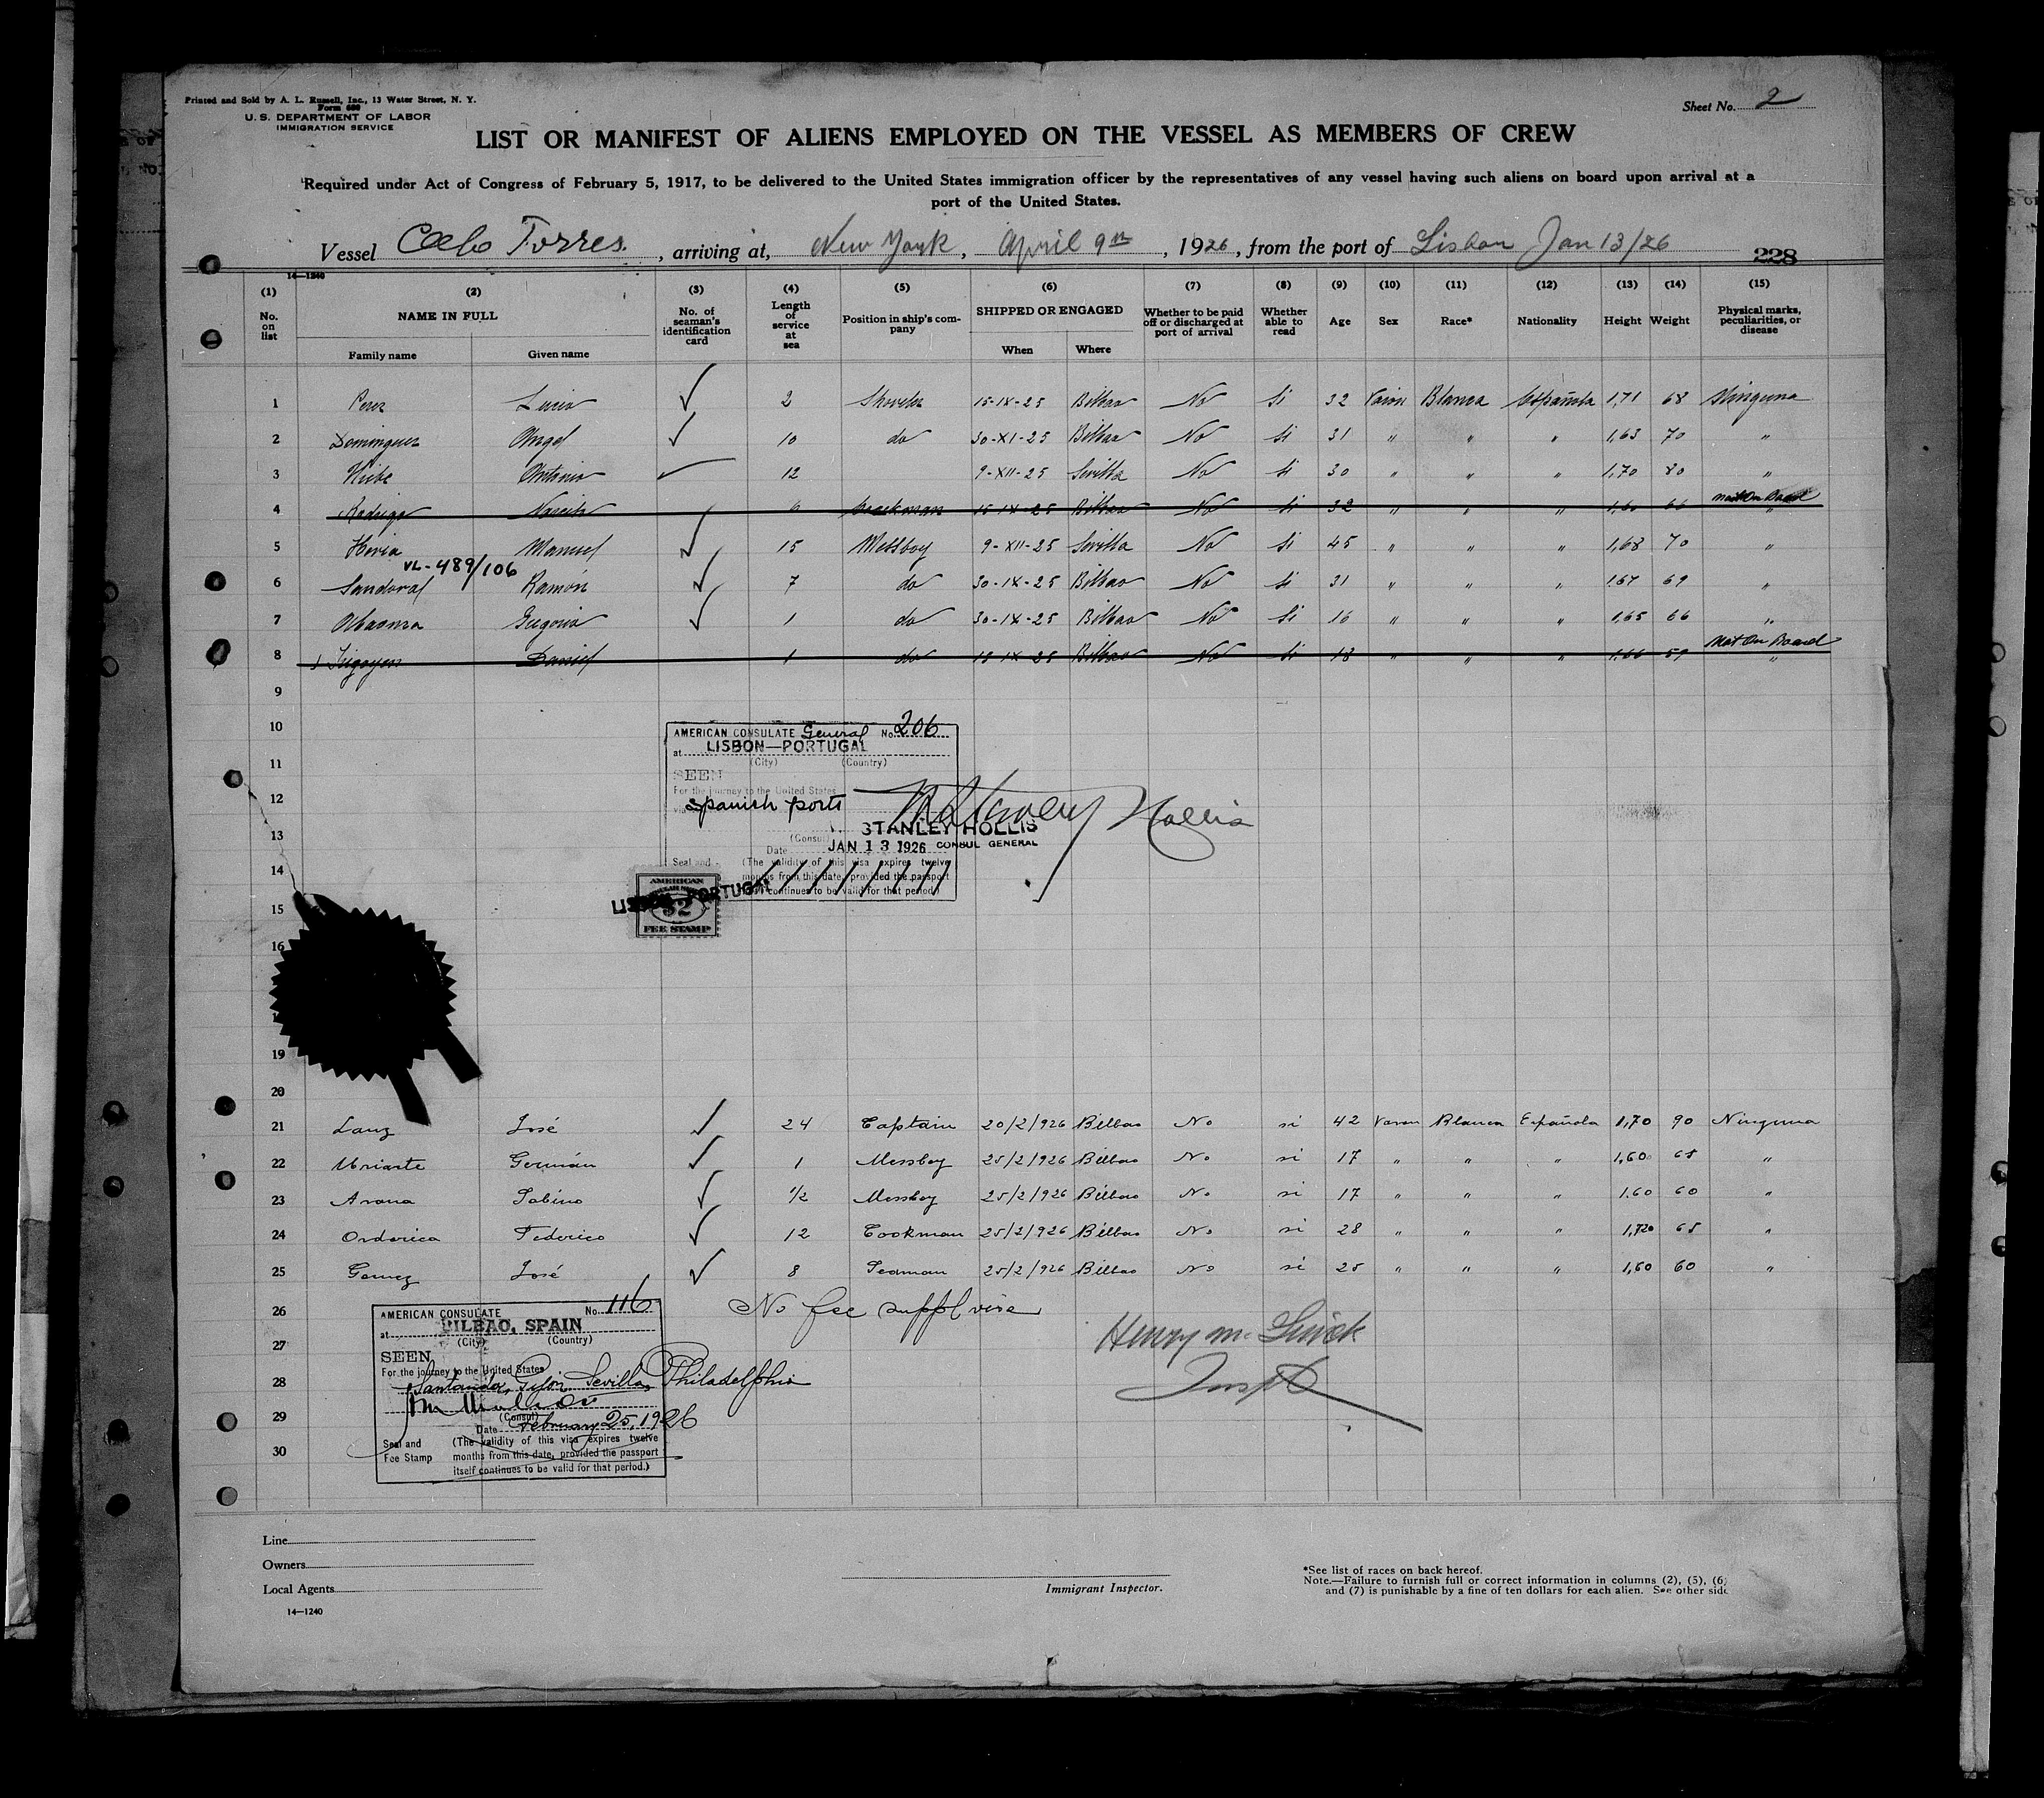 Printed and Sold by A. L. Russell, Inc., 13 Water Street, N. Y.
Form 680
U. S. DEPARTMENT OF LABOR
IMMIGRATION SERVICE
Sheet No. 2
LIST OR MANIFEST OF ALIENS EMPLOYED ON THE VESSEL AS MEMBERS OF CREW
Required under Act of Congress of February 5, 1917, to be delivered to the United States immigration officer by the representatives of any vessel having such aliens on board upon arrival at a
port of the United States.
Vessel Cabo Torres, arriving at, New York, April 9th, 1926, from the port of Lisbon Jan 13/26
228
14—1240
(1) No. on list (2) NAME IN FULL Family name Given name (3) No. of seaman's identification card (4) Length of service at sea (5) Position in ship's company (6) SHIPPED OR ENGAGED When Where (7) Whether to be paid off or discharged at port of arrival (8) Whether able to read (9) Age (10) Sex (11) Race* (12) Nationality (13) Height (14) Weight (15) Physical marks, peculiarities, or disease
1 Perez Lucio ✓ 2 15-IX-25 Bilbao No Si 32 Varon Blanca Española 1,71 68 Ninguna
2 Dominguez Angel ✓ 10 do 30-XI-25 Bilbao No Si 31 " " " 1,63 70 "
3 Antonio ✓ 12 9-XII-25 Sevilla No Si 30 " " " 1,70 80 "
4 Rodrigo 6 15-IX-25 Bilbao No Si 32 " " 1,60 66 Not On Board "
5 Hevia Manuel ✓ 15 Messboy 9-XII-25 Sevilla No Si 45 " " " 1,68 70 "
VL-489/106
6 Sandoval Ramón ✓ 7 do 30-IX-25 Bilbao No Si 31 " " " 1,67 69 "
7 Gregorio ✓ 1 do 30-IX-25 Bilbao No Si 16 " " " 1,65 66 "
8 Irigoyen Daniel 1 do 15-IX-25 Bilbao No Si 18 " " " 1,66 59 Not On Board "
9
10
11
12
13
14
15
16
19
20
AMERICAN CONSULATE General No. 206
at LISBON—PORTUGAL
(City) (Country)
SEEN
For the journey to the United States
via Spanish ports
W. Stanley Hollis
STANLEY HOLLIS
(Consul) CONSUL GENERAL
Date JAN 13 1926
Seal and (The validity of this visa expires twelve
months from this date, provided the passport
continues to be valid for that period.)
LISBON PORTUGAL
AMERICAN
$2
FEE STAMP
21 Lanz José ✓ 24 Captain 20/2/926 Bilbao No si 42 Varon Blanca Española 1,70 90 Ninguna
22 Uriarte Germán ✓ 1 Messboy 25/2/926 Bilbao No si 17 " " " 1,60 65 "
23 Arana Sabino ✓ 1/2 Messboy 25/2/926 Bilbao No si 17 " " " 1.60 60 "
24 Ordorica Federico ✓ 12 Cookman 25/2/926 Bilbao No si 28 " " " 1,720 65 "
25 Gomez José ✓ 8 Seaman 25/2/926 Bilbao No si 25 " " " 1,60 60 "
26 No fee suppl visa
27
28
29
30
AMERICAN CONSULATE No. 116
at BILBAO, SPAIN
(City) (Country)
SEEN
For the journey to the United States
Santander, Gijon, Sevilla, Philadelphia
(Consul)
Date February 25, 1926
Seal and Fee Stamp (The validity of this visa expires twelve
months from this date, provided the passport
itself continues to be valid for that period.)
Henry
Inspt
Line
Owners
Local Agents
14—1240
Immigrant Inspector.
*See list of races on back hereof.
Note.—Failure to furnish full or correct information in columns (2), (5), (6)
and (7) is punishable by a fine of ten dollars for each alien. See other side